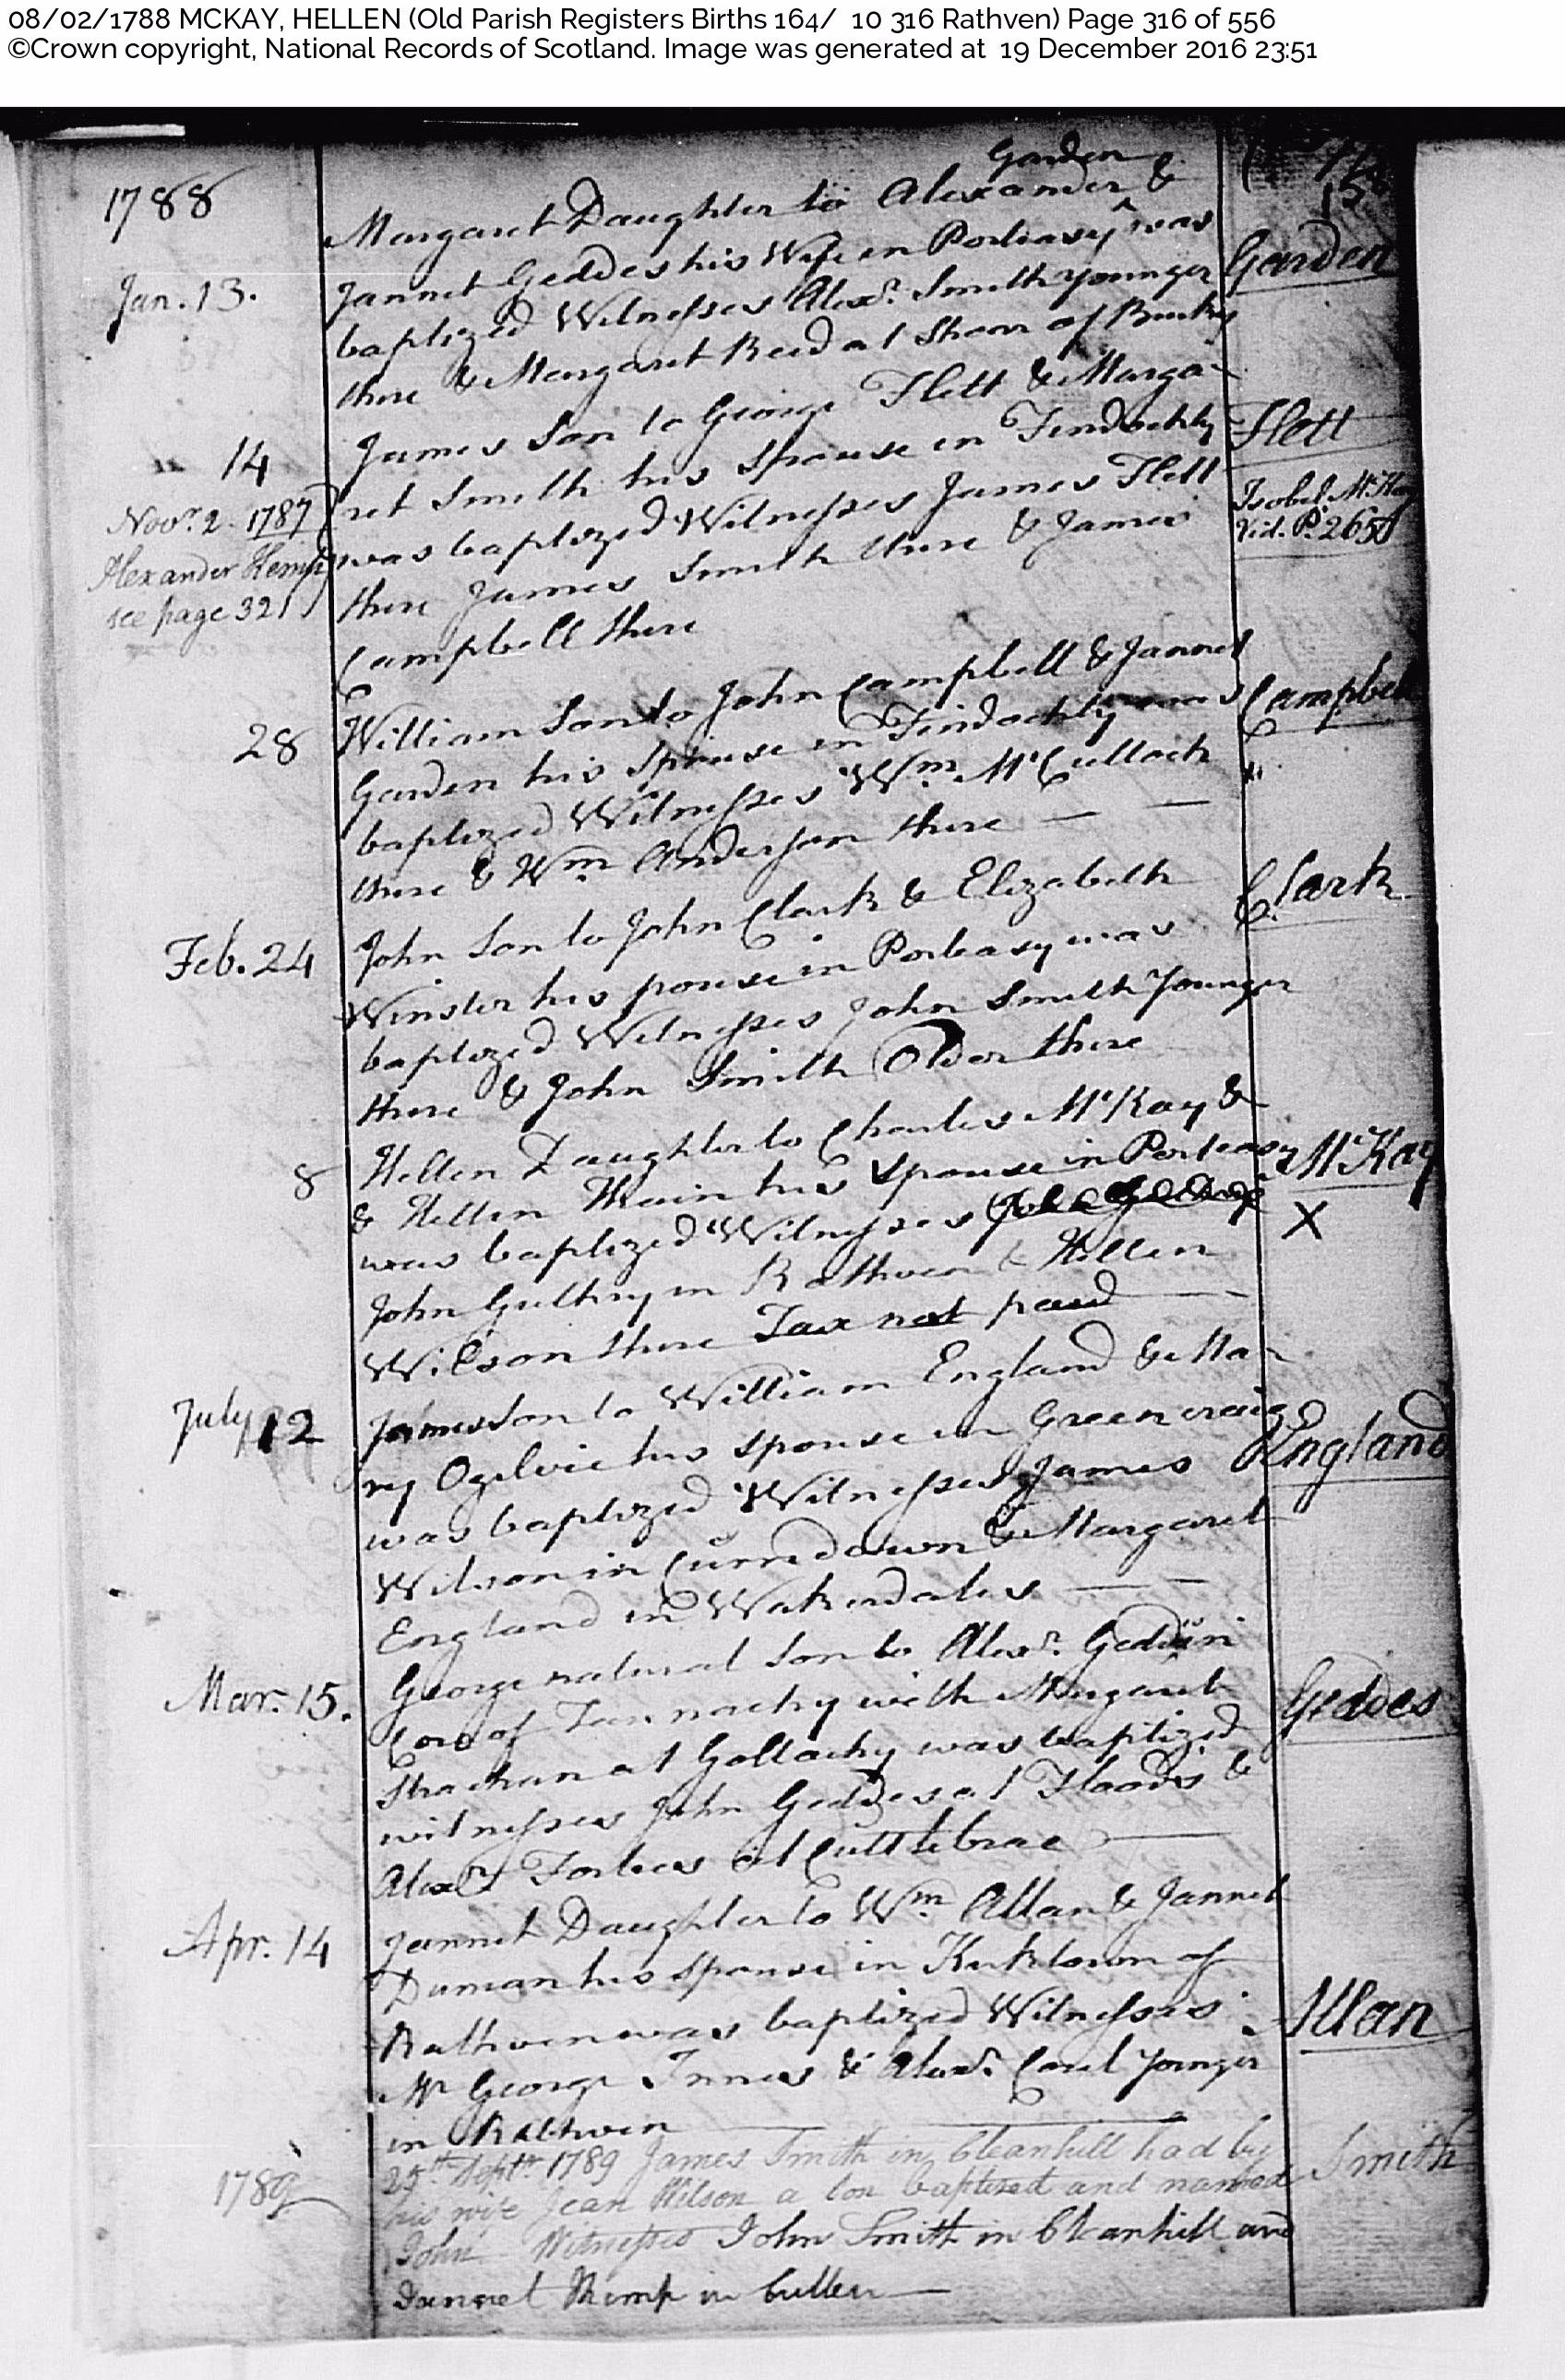 08/02/1788 MCKAY, HELLEN (Old Parish Registers Births 164/ 10 316 Rathven) Page 316 of 556
©Crown copyright, National Records of Scotland. Image was generated at 19 December 2016 23:51
15
1788
Garden
Margaret Daughter to Alexander &
Jannet Geddes his Wife in Porteasy ^ was
Garden
Jan. 13.
baptized Witnesses Alexr. Smith younger
there & Margaret Reid at Shore of Bucky
James Son to George Flett & Marga-
Flett
14
ret Smith his Spouse in Findochty
Isobel McKay
Vid. P. 265
Novr. 2. 1787
was baptized Witnesses James Flett
Alexander Kemp
see page 321
there James Smith there & James
Campbell there
William Son to John Campbell & Jannet
Campbell
28
Garden his Spouse in Findochty was
baptized Witnesses Wm. McCulloch
there & Wm. Anderson there
John Son to John Clark & Elizabeth
Clark
Feb. 24
Winster his spouse in Porteasy was
baptized Witnesses John Smith Younger
there & John Smith Older there
Hellen Daughter to Charles McKay &
McKay
8
& Hellen Thain his Spouse in Porteasy
X
was baptized Witnesses
John Guthry in Rathven & Hellen
Wilson there Tax not paid
James Son to William England & Ma-
July 12
ry Ogilvie his spouse in Greencraig
England
was baptized Witnesses James
Wilson in Curredown & Margaret
England in Wakerdales
George natural Son to Alexr. Geddes in
Mar. 15.
Core of Tannachy with Margaret
Geddes
Strachan at Gollachy was baptized
witnesses John Geddes at Floods &
Alexr. Forbes at Cuttlebrae
Jannet Daughter to Wm. Allan & Jannet
Apr. 14
Duncan his Spouse in Kirktown of
Rathven was baptized Witnesses
Allan
Mr George Innes & Alexr. Coul younger
in Rathven
25th Septr. 1789 James Smith in Cleanhill had by
Smith
1789
his wife Jean Wilson a Son baptized and named
John Witnesses John Smith in Cleanhill and
Jannet Kemp in Cullen